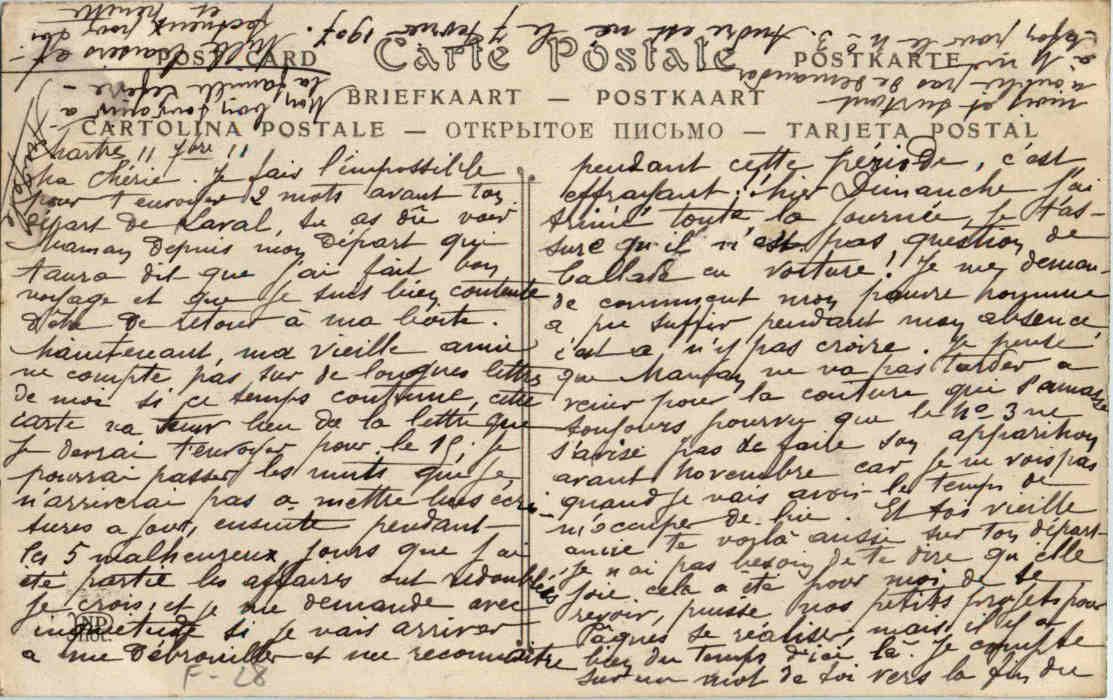 POST CARD Carte Postale POSTKARTE
BRIEFKAART — POSTKAART
CARTOLINA POSTALE — ОТКРЫТОЕ ПИСЬМО — TARJETA POSTAL
André est né le 7 février 1907.
11 7bre 11
Ma Chérie. Je fais l'impossible
pour t'envoyer 2 mots avant ton
départ de Laval, tu as dû voir
Maman depuis mon départ qui
t'aura dit que j'ai fait bon
voyage et que je suis bien contente
d'être de retour à ma boîte.
Maintenant, ma vieille amie
ne compte pas sur de longues lettres
de moi si ce temps continue, cette
carte va tenir lieu de la lettre que
je devrai t'envoyer pour le 15, je
pourrai passer les nuits que je
n'arriverai pas à mettre mes écri-
tures à jour, ensuite pendant
les 5 malheureux jours que j'ai
été partie les affaires ont redoublées
je crois, et je me demande avec
inquiétude si je vais arriver
à me débrouiller et me reconnaître
pendant cette période, c'est
effrayant; hier Dimanche j'ai
trimé toute la journée, je t'as-
sure qu'il n'est pas question de
ballade en voiture! Je me deman-
de comment mon pauvre homme
a pu suffir pendant mon absence,
c'est à n'y pas croire. Je pense
que Maman ne va pas tarder à
venir pour la couture qui s'amasse
toujours pourvu que le no 3 ne
s'avise pas de faire son apparition
avant novembre car je ne vois pas
quand je vais avoir le temps de
m'occuper de lui. Et toi vieille
amie te voilà aussi sur ton départ
je n'ai pas besoin de te dire qu'elle
joie cela a été pour moi de te
revoir, puisse nos petits projets pour
Pâques se réaliser, mais il y a
bien du temps d'ici là. Je compte
sur un mot de toi vers la fin du
mois et surtout
n'oublie pas de demander
à
façon pour le no 3.
bon souvenir à
la famille
Mille baisers et
pour toi
et
ND
Phot.
F-28